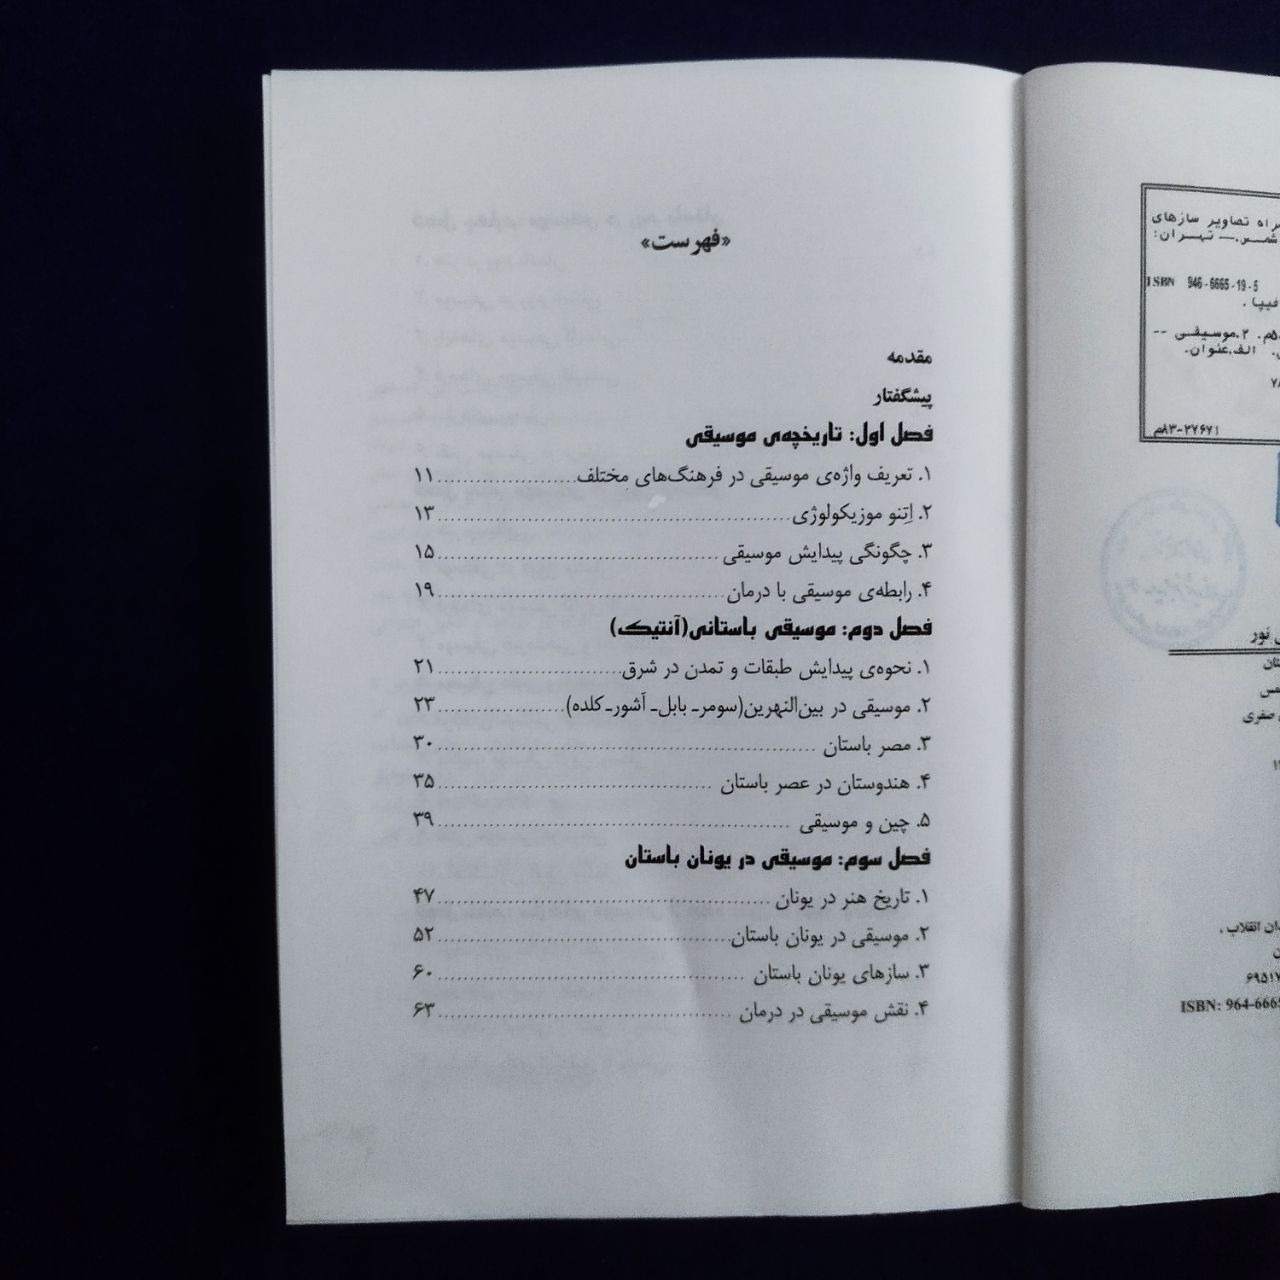 راه تصاویر سازهای
شمس.— تهران:
ISBN 946-6665-19-5
فیپا.
۵م. ۲.موسیقی --
الف.عنوان.
۷۸
۸۳-۲۷۶۷۱م
نور
صفری
ان انقلاب ،
۶۹۵۱۷
ISBN: 964-6665
«فهرست»
مقدمه
پیشگفتار
فصل اول: تاریخچه‌ی موسیقی
۱. تعریف واژه‌ی موسیقی در فرهنگ‌های مختلف ۱۱
۲. اِتنو موزیکولوژی ۱۳
۳. چگونگی پیدایش موسیقی ۱۵
۴. رابطه‌ی موسیقی با درمان ۱۹
فصل دوم: موسیقی باستانی(آنتیک)
۱. نحوه‌ی پیدایش طبقات و تمدن در شرق ۲۱
۲. موسیقی در بین‌النهرین(سومر- بابل- آشور- کلده) ۲۳
۳. مصر باستان ۳۰
۴. هندوستان در عصر باستان ۳۵
۵. چین و موسیقی ۳۹
فصل سوم: موسیقی در یونان باستان
۱. تاریخ هنر در یونان ۴۷
۲. موسیقی در یونان باستان ۵۲
۳. سازهای یونان باستان ۶۰
۴. نقش موسیقی در درمان ۶۳